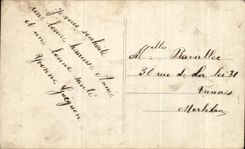 Je vous souhaite
une bonne heureuse Année
et une bonne santé
Yvonne
Mlle
31 rue de la
Vannes
Morbihan